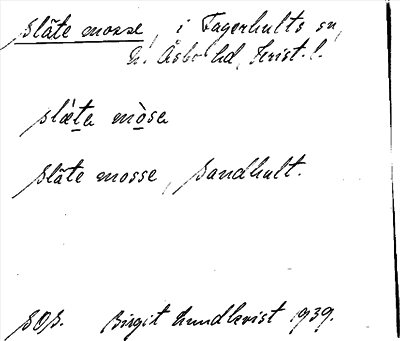 släte mosse, i Fagerhults sn,
n. Åsbo hd, Krist. l.
slǽta mòsa
släte mosse, Sandhult.
SOS. Birgit Lundkvist 1939.